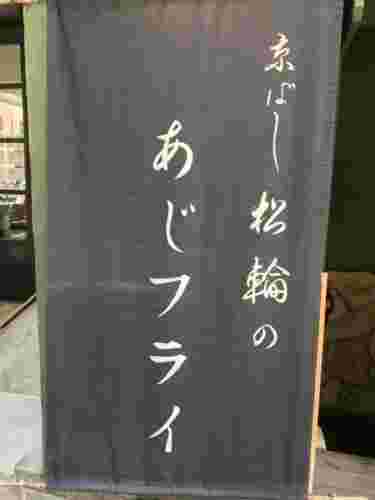 京ばし松輪の
あじフライ